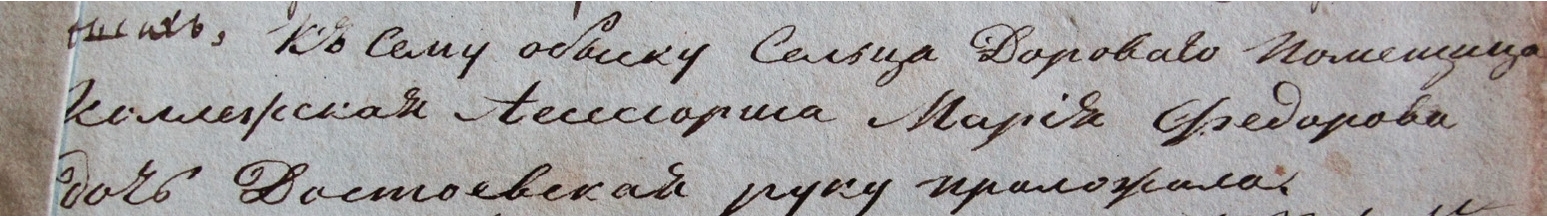 шихъ, Къ сему обыску Сельца Дороваго помещица
Коллежская Асессорша Марія Федорова
дочь Достоевская руку приложила.